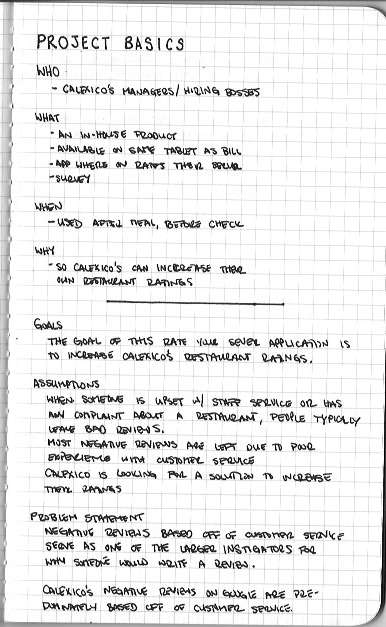 PROJECT BASICS
WHO
- CALEXICO'S MANAGERS/HIRING BOSSES
WHAT
- AN IN-HOUSE PRODUCT
- AVAILABLE ON SAME TABLET AS BILL
- APP WHERE ON RATES THEIR SERVER
- SURVEY
WHEN
- USED AFTER MEAL, BEFORE CHECK
WHY
- SO CALEXICO'S CAN INCREASE THEIR
OWN RESTAURANT RATINGS
GOALS
THE GOAL OF THIS RATE YOUR SEVER APPLICATION IS
TO INCREASE CALEXICO'S RESTAURANT RATINGS.
ASSUMPTIONS
WHEN SOMEONE IS UPSET W/ STAFF SERVICE OR HAS
ANY COMPLAINT ABOUT A RESTAURANT, PEOPLE TYPICALLY
LEAVE BAD REVIEWS.
MOST NEGATIVE REVIEWS ARE LEFT DUE TO POOR
EXPERIENCE WITH CUSTOMER SERVICE
CALEXICO IS LOOKING FOR A SOLUTION TO INCREASE
THEIR RATINGS
PROBLEM STATEMENT
NEGATIVE REVIEWS BASED OFF OF CUSTOMER SERVICE
SERVE AS ONE OF THE LARGER INSTIGATORS FOR
WHY SOMEONE WOULD WRITE A REVIEW.
CALEXICO'S NEGATIVE REVIEWS ON GOOGLE ARE PRE-
DOMINATELY BASED OFF OF CUSTOMER SERVICE.